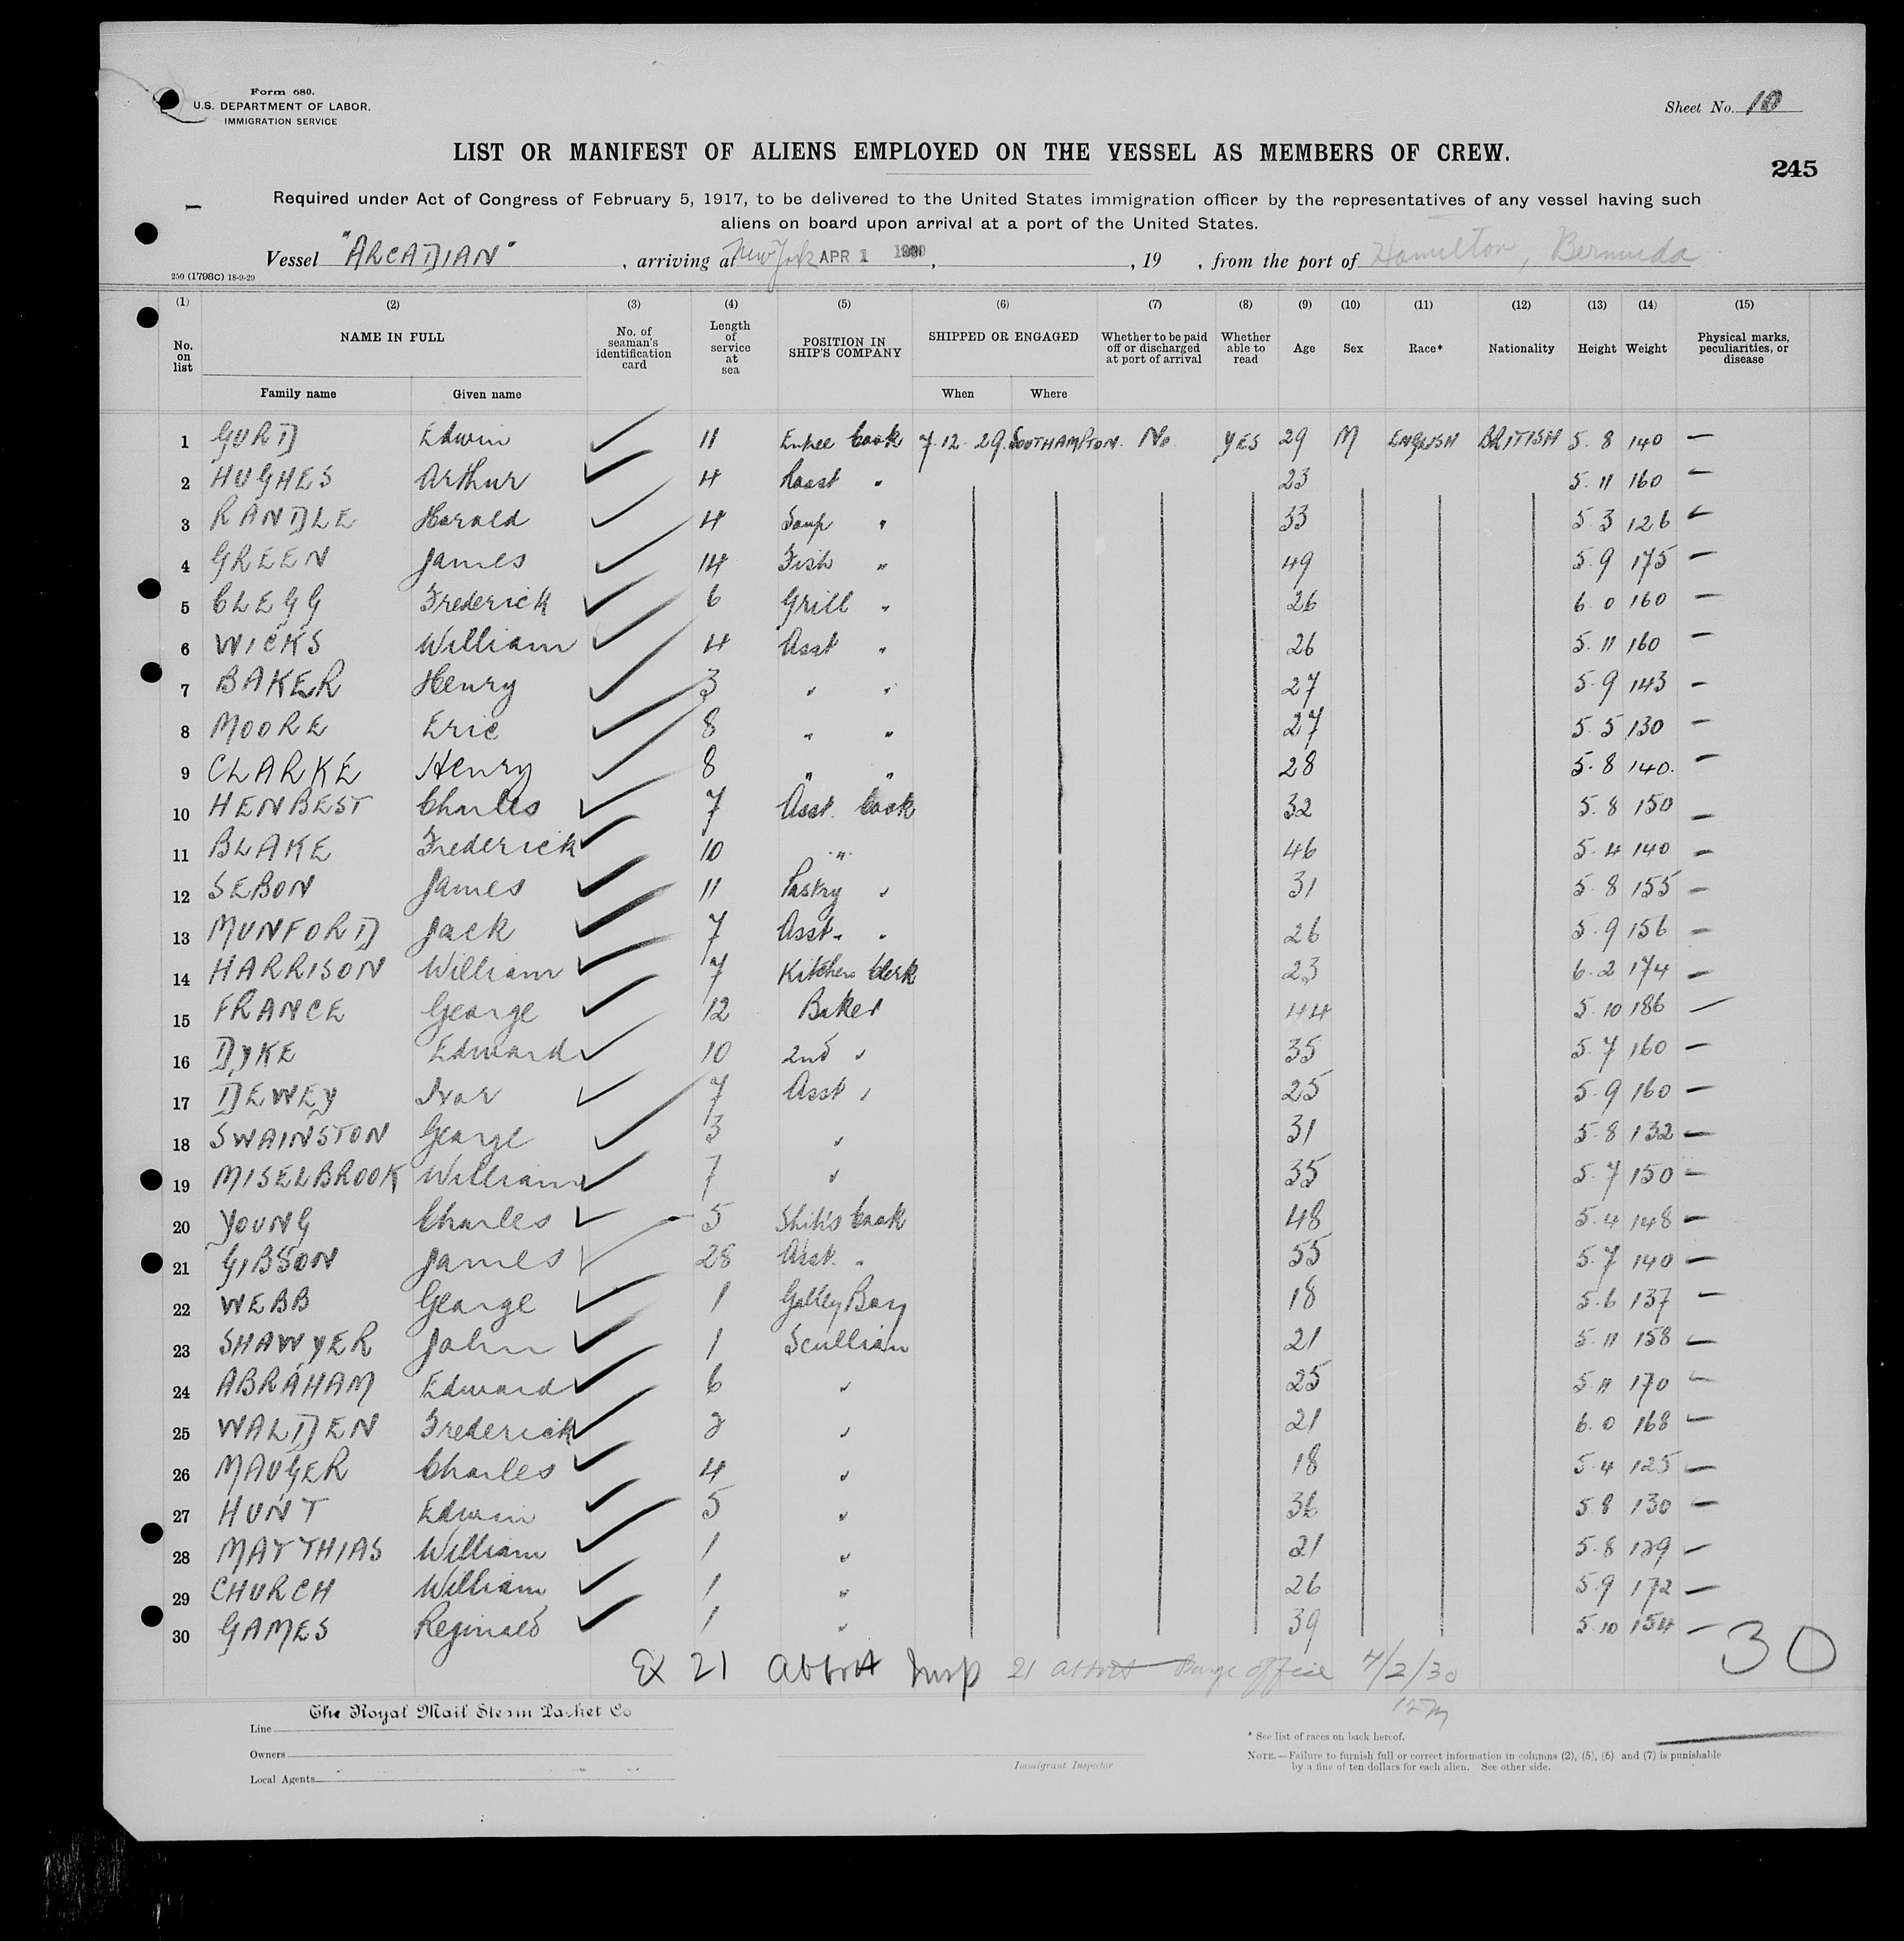 Form 680.
U.S. DEPARTMENT OF LABOR.
IMMIGRATION SERVICE
Sheet No. 10
LIST OR MANIFEST OF ALIENS EMPLOYED ON THE VESSEL AS MEMBERS OF CREW.
245
Required under Act of Congress of February 5, 1917, to be delivered to the United States immigration officer by the representatives of any vessel having such
aliens on board upon arrival at a port of the United States.
Vessel "ARCADIAN", arriving at New York APR 1 1930, , 19 , from the port of Hamilton, Bermuda
250 (1798C) 18-9-29
(1) (2) (3) (4) (5) (6) (7) (8) (9) (10) (11) (12) (13) (14) (15)
No. on list NAME IN FULL No. of seaman's identification card Length of service at sea POSITION IN SHIP'S COMPANY SHIPPED OR ENGAGED Whether to be paid off or discharged at port of arrival Whether able to read Age Sex Race* Nationality Height Weight Physical marks, peculiarities, or disease
Family name Given name When Where
1 GURD Edwin 11 Entree Cook 7.12.29. SOUTHAMPTON. No YES 29 M ENGLISH BRITISH 5. 8 140 —
2 HUGHES Arthur 4 Roast " 23 5. 11 160 —
3 RANDLE Harold 4 Soup " 33 5. 3 126 —
4 GREEN James 14 Fish " 49 5. 9 175 —
5 CLEGG Frederick 6 Grill " 26 6. 0 160 —
6 WICKS William 4 Asst " 26 5. 11 160 —
7 BAKER Henry 3 " " 27 5. 9 143 —
8 MOORE Eric 8 " " 27 5. 5 130 —
9 CLARKE Henry 8 " " 28 5. 8 140. —
10 HENBEST Charles 7 Asst. Cook 32 5. 8 150 —
11 BLAKE Frederick 10 " 46 5. 4 140 —
12 SEBON James 11 Pastry " 31 5 8 155 —
13 MUNFORD Jack 7 Asst " " 26 5. 9 156 —
14 HARRISON William 7 Kitchen Clerk 23 6. 2 174 —
15 FRANCE George 12 Baker 44 5. 10 186 —
16 DYKE Edward 10 2nd " 35 5. 7 160 —
17 DEWEY Ivor 7 Asst " 25 5. 9 160 —
18 SWAINSTON George 3 " 31 5. 8 132 —
19 MISELBROOK William 7 " 35 5. 7 150 —
20 YOUNG Charles 5 Ship's Cook 48 5. 4 148 —
21 GIBSON James 28 Asst. " 55 5. 7 140 —
22 WEBB George 1 Galley Boy 18 5. 6 137 —
23 SHAWYER John 1 Scullian 21 5. 11 158 —
24 ABRAHAM Edward 6 " 25 5 11 170 —
25 WALDEN Frederick 2 " 21 6. 0 168 —
26 MAUGER Charles 4 " 18 5. 4 125 —
27 HUNT Edwin 5 " 36 5 8 130 —
28 MATTHIAS William 1 " 21 5. 8 129 —
29 CHURCH William 1 " 26 5. 9 172 —
30 GAMES Reginald 1 " 39 5. 10 154 —
30
Ex 21 Abbott Insp 21 Abbott Barge office 4/2/30
The Royal Mail Steam Packet Co
Line
Owners
Local Agents
Immigrant Inspector
* See list of races on back hereof.
NOTE.—Failure to furnish full or correct information in columns (2), (5), (6) and (7) is punishable
by a fine of ten dollars for each alien. See other side.